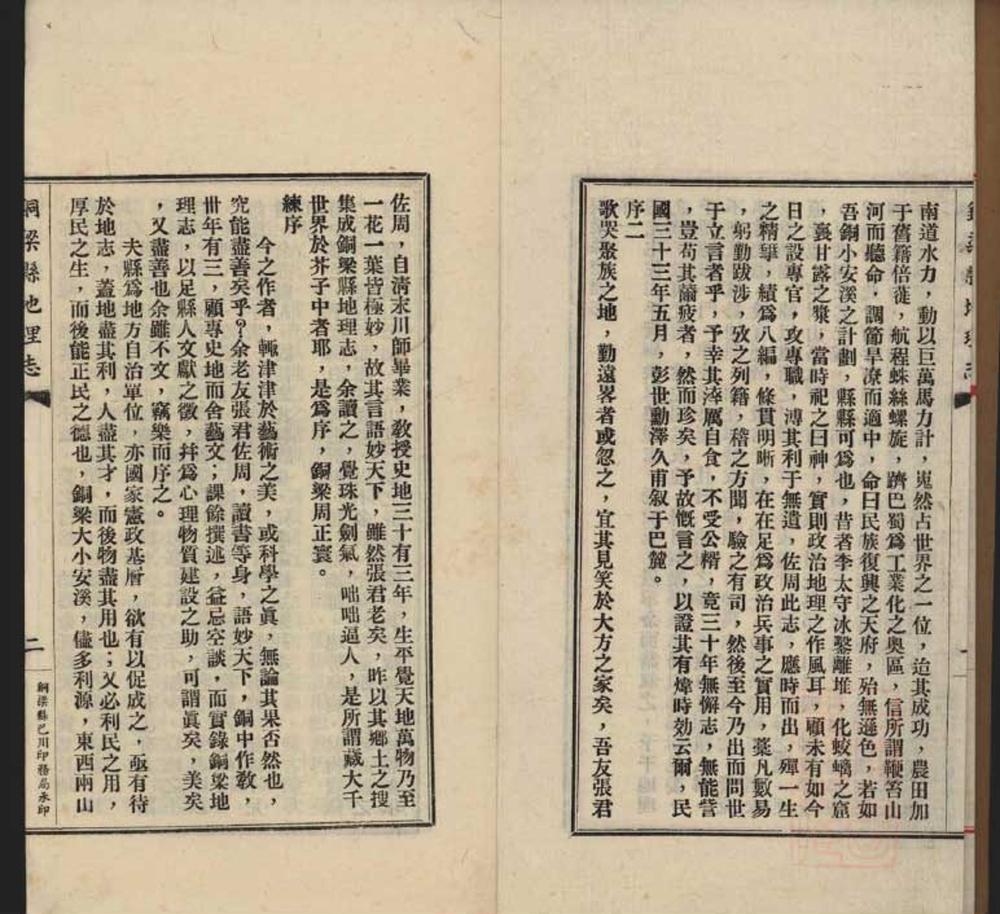 南道水力，動以巨萬馬力計，嵬然占世界之一位，迨其成功，農田加
于舊籍倍蓰，航程蛛絲螺旋，躋巴蜀爲工業化之奧區，信所謂鞭笞山
河而聽命，調節旱潦而適中，命曰民族復興之天府，殆無遜色，若如
吾銅小安溪之計劃，縣縣可爲也，昔者李太守冰鑿離堆，化蛟螭之窟
，襄甘露之漿，當時祀之曰神，實則政治地理之作風耳，顧未有如今
日之設專官，攻專職，溥其利于無遺，佐周此志，應時而出，殫一生
之精舉，續爲八編，條貫明晰，在在足爲政治兵事之實用，藁凡數易
，躬勤跋涉，攷之列籍，稽之方聞，驗之有司，然後至今乃出而問世
于立言者乎，予幸其滓厲自食，不受公糈，竟三十年無懈志，無能訾
，豈苟其薾疲者，然而珍矣，予故慨言之，以證其有煒時効云爾，民
國三十三年五月，彭世勳澤久甫叙于巴麓。
序二
歌哭聚族之地，勤遠畧者或忽之，宜其見笑於大方之家矣，吾友張君
佐周，自清末川師畢業，敎授史地三十有三年，生平覺天地萬物乃至
一花一葉皆極妙，故其言語妙天下，雖然張君老矣，昨以其鄉土之搜
集成銅梁縣地理志，余讀之，覺珠光劍氣，咄咄逼人，是所謂藏大千
世界於芥子中者耶，是爲序，銅梁周正寰。
練序
今之作者，輒津津於藝術之美，或科學之眞，無論其果否然也，
究能盡善矣乎？余老友張君佐周，讀書等身，語妙天下，銅中作敎，
卅年有三，顧專史地而舍藝文；課餘撰述，益忌空談，而實錄銅梁地
理志，以足縣人文獻之徵，幷爲心理物質建設之助，可謂眞矣，美矣
，又盡善也余雖不文，竊樂而序之。
夫縣爲地方自治單位，亦國家憲政基層，欲有以促成之，亟有待
於地志，蓋地盡其利，人盡其才，而後物盡其用也；又必利民之用，
厚民之生，而後能正民之德也，銅梁大小安溪，儘多利源，東西兩山
銅梁縣地理志
二
銅梁縣巴川印務局承印